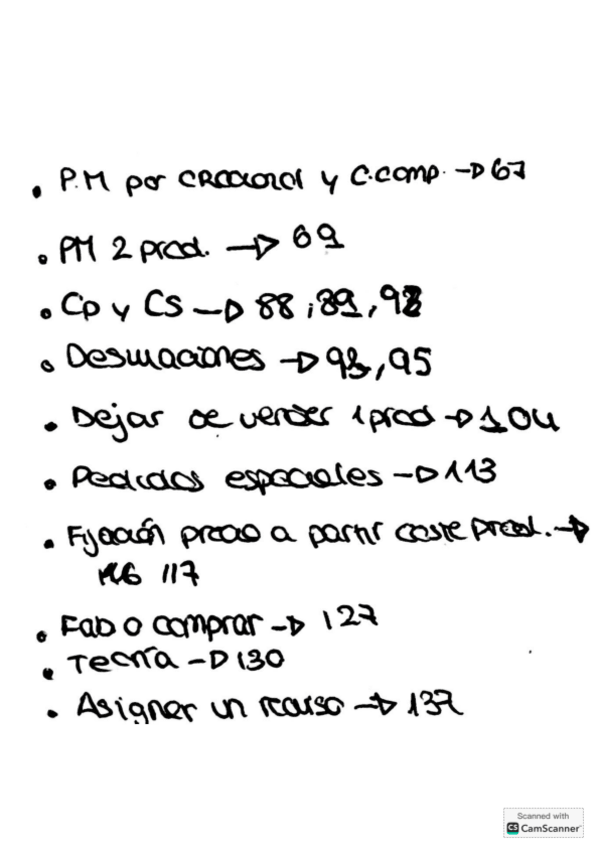 • P.M por CRacional y C.comp. → 67
• PM 2 prod. → 69
• Cp y CS → 88, 89, 93
• Desviaciones → 93, 95
• Dejar de vender 1 prod → 104
• Pedidos especiales → 113
• Fijación precio a partir coste prod. →
117
• Fab o comprar → 127
• Tecnía → 130
• Asigner un recurso → 137
Scanned with
CS CamScanner